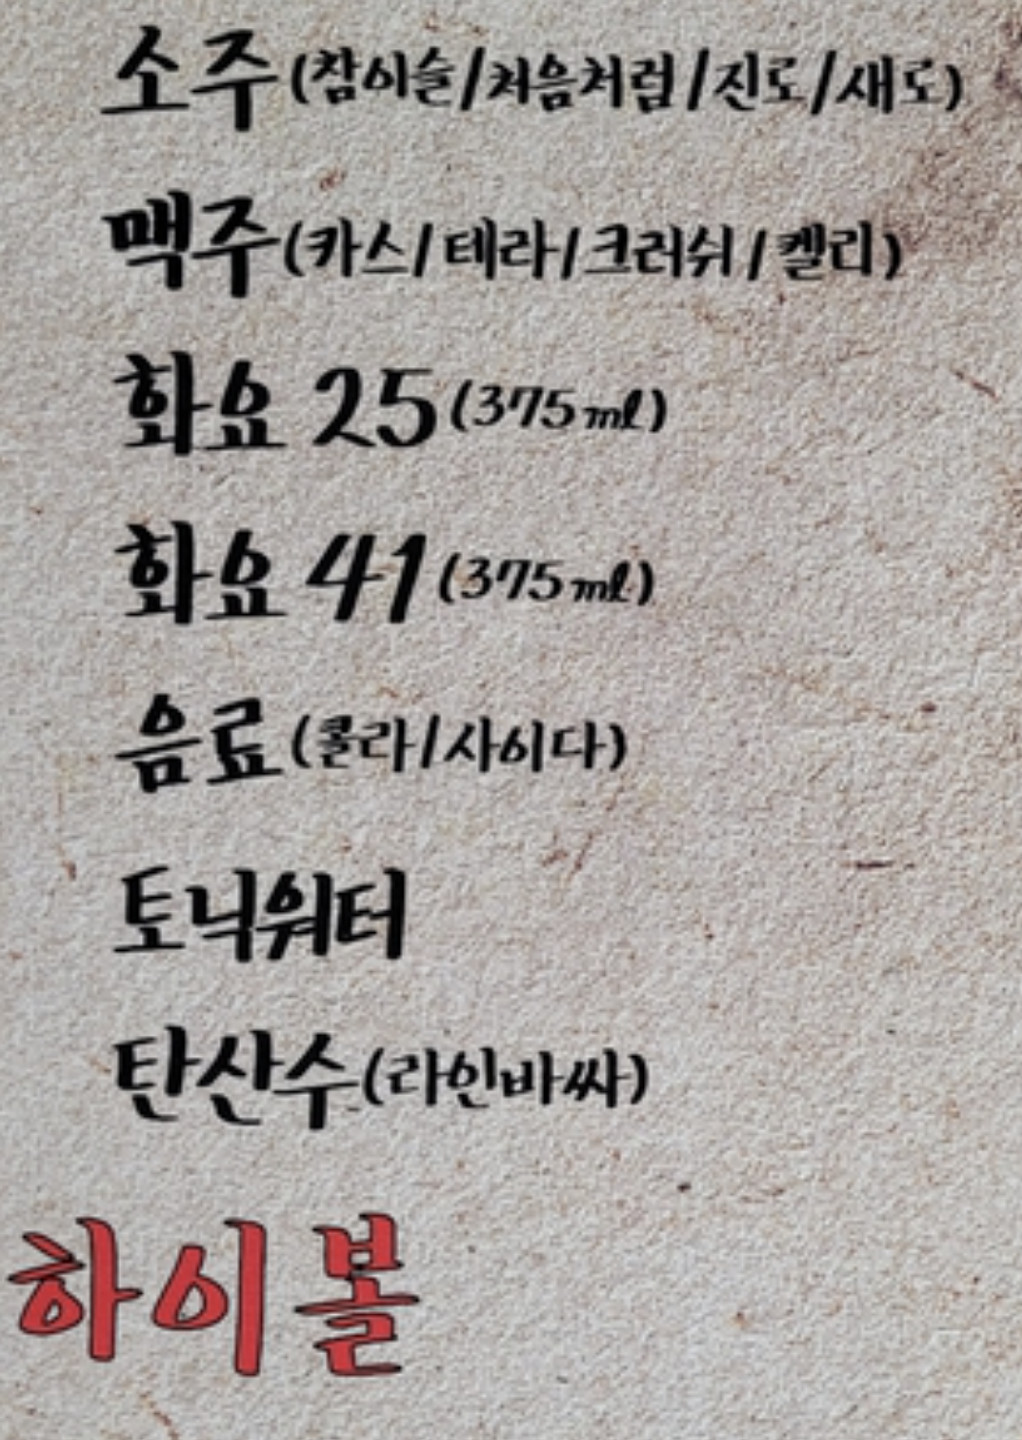 소주(참이슬/처음처럼/진로/새로)
맥주(카스/테라/크러쉬/켈리)
화요 25(375ml)
화요 41(375ml)
음료(콜라/사이다)
토닉워터
탄산수(라인바싸)
하이볼